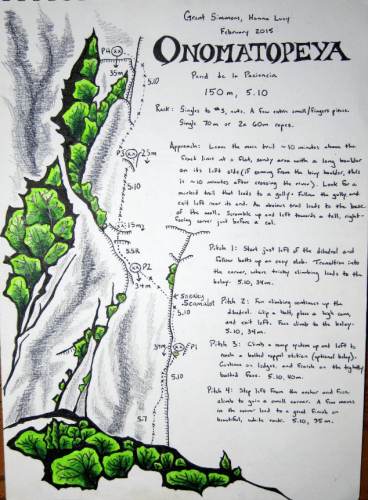 Grant Simmons, Hanna Lucy
February 2015
ONOMATOPEYA
Pared de la Paciencia
150m, 5.10
Rack: Singles to #3, nuts. A few extra small/fingers pieces.
Single 70m or 2x 60m ropes.
Approach: Leave the main trail ~10 minutes above the
Frack lines at a flat, sandy area with a long boulder
on its left side (if coming from the bivy boulder, this
is ~10 minutes after crossing the river). Look for a
marked trail that leads to a gully. Follow the gully and
exit left near its end. An obvious trail leads to the base
of the wall. Scramble up and left towards a tall, right-
facing corner just before a col.
Pitch 1: Start just left of the dihedral and
follow bolts up an easy slab. Transition into
the corner, where tricky climbing leads to the
belay. 5.10, 34m.
Pitch 2: Fun climbing continues up the
dihedral. Clip a bolt, place a high cam,
and exit left. Face climb to the belay.
5.10, 34m.
Pitch 3: Climb a ramp system up and left to
reach a bolted rappel station (optional belay).
Continue on ledges, and finish on the tightly
bolted face. 5.10, 40m.
Pitch 4: Step left from the anchor and face
climb to gain a small corner. A few moves
in the corner lead to a great finish on
beautiful, white rock. 5.10, 35m.
P4
35m
5.10
P3
25m
5.10
15m
5.5R
P2
34m
Sneaky
5.10
34m
P1
5.10
5.7